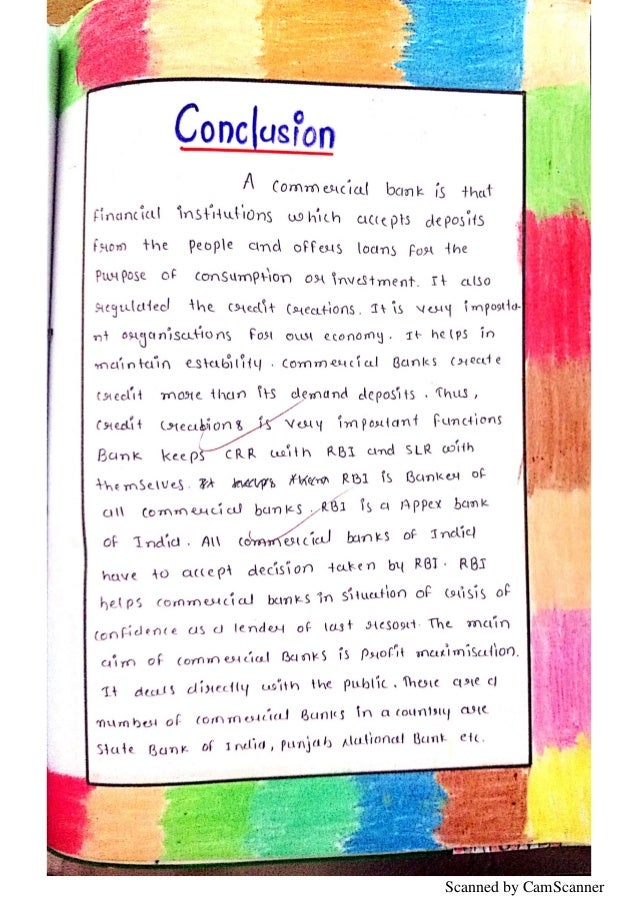 Conclusion
A commercial bank is that
financial institutions which accepts deposits
from the people and offers loans for the
purpose of consumption or investment. It also
regulated the credit creations. It is very importa-
nt organisations for our economy. It helps in
maintain estability. commercial Banks create
credit more than its demand deposits. Thus,
credit creations is very important functions
Bank keeps CRR with RBI and SLR with
themselves. RBI is Banker of
all commercial banks. RBI is a Appex bank
of India. All commercial banks of India
have to accept decision taken by RBI. RBI
helps commercial banks in situation of crisis of
confidence as a lender of last resort. The main
aim of commercial Banks is profit maximisation.
It deals directly with the public. There are a
number of commercial Banks in a country are
State Bank of India, Punjab National Bank etc.
Scanned by CamScanner